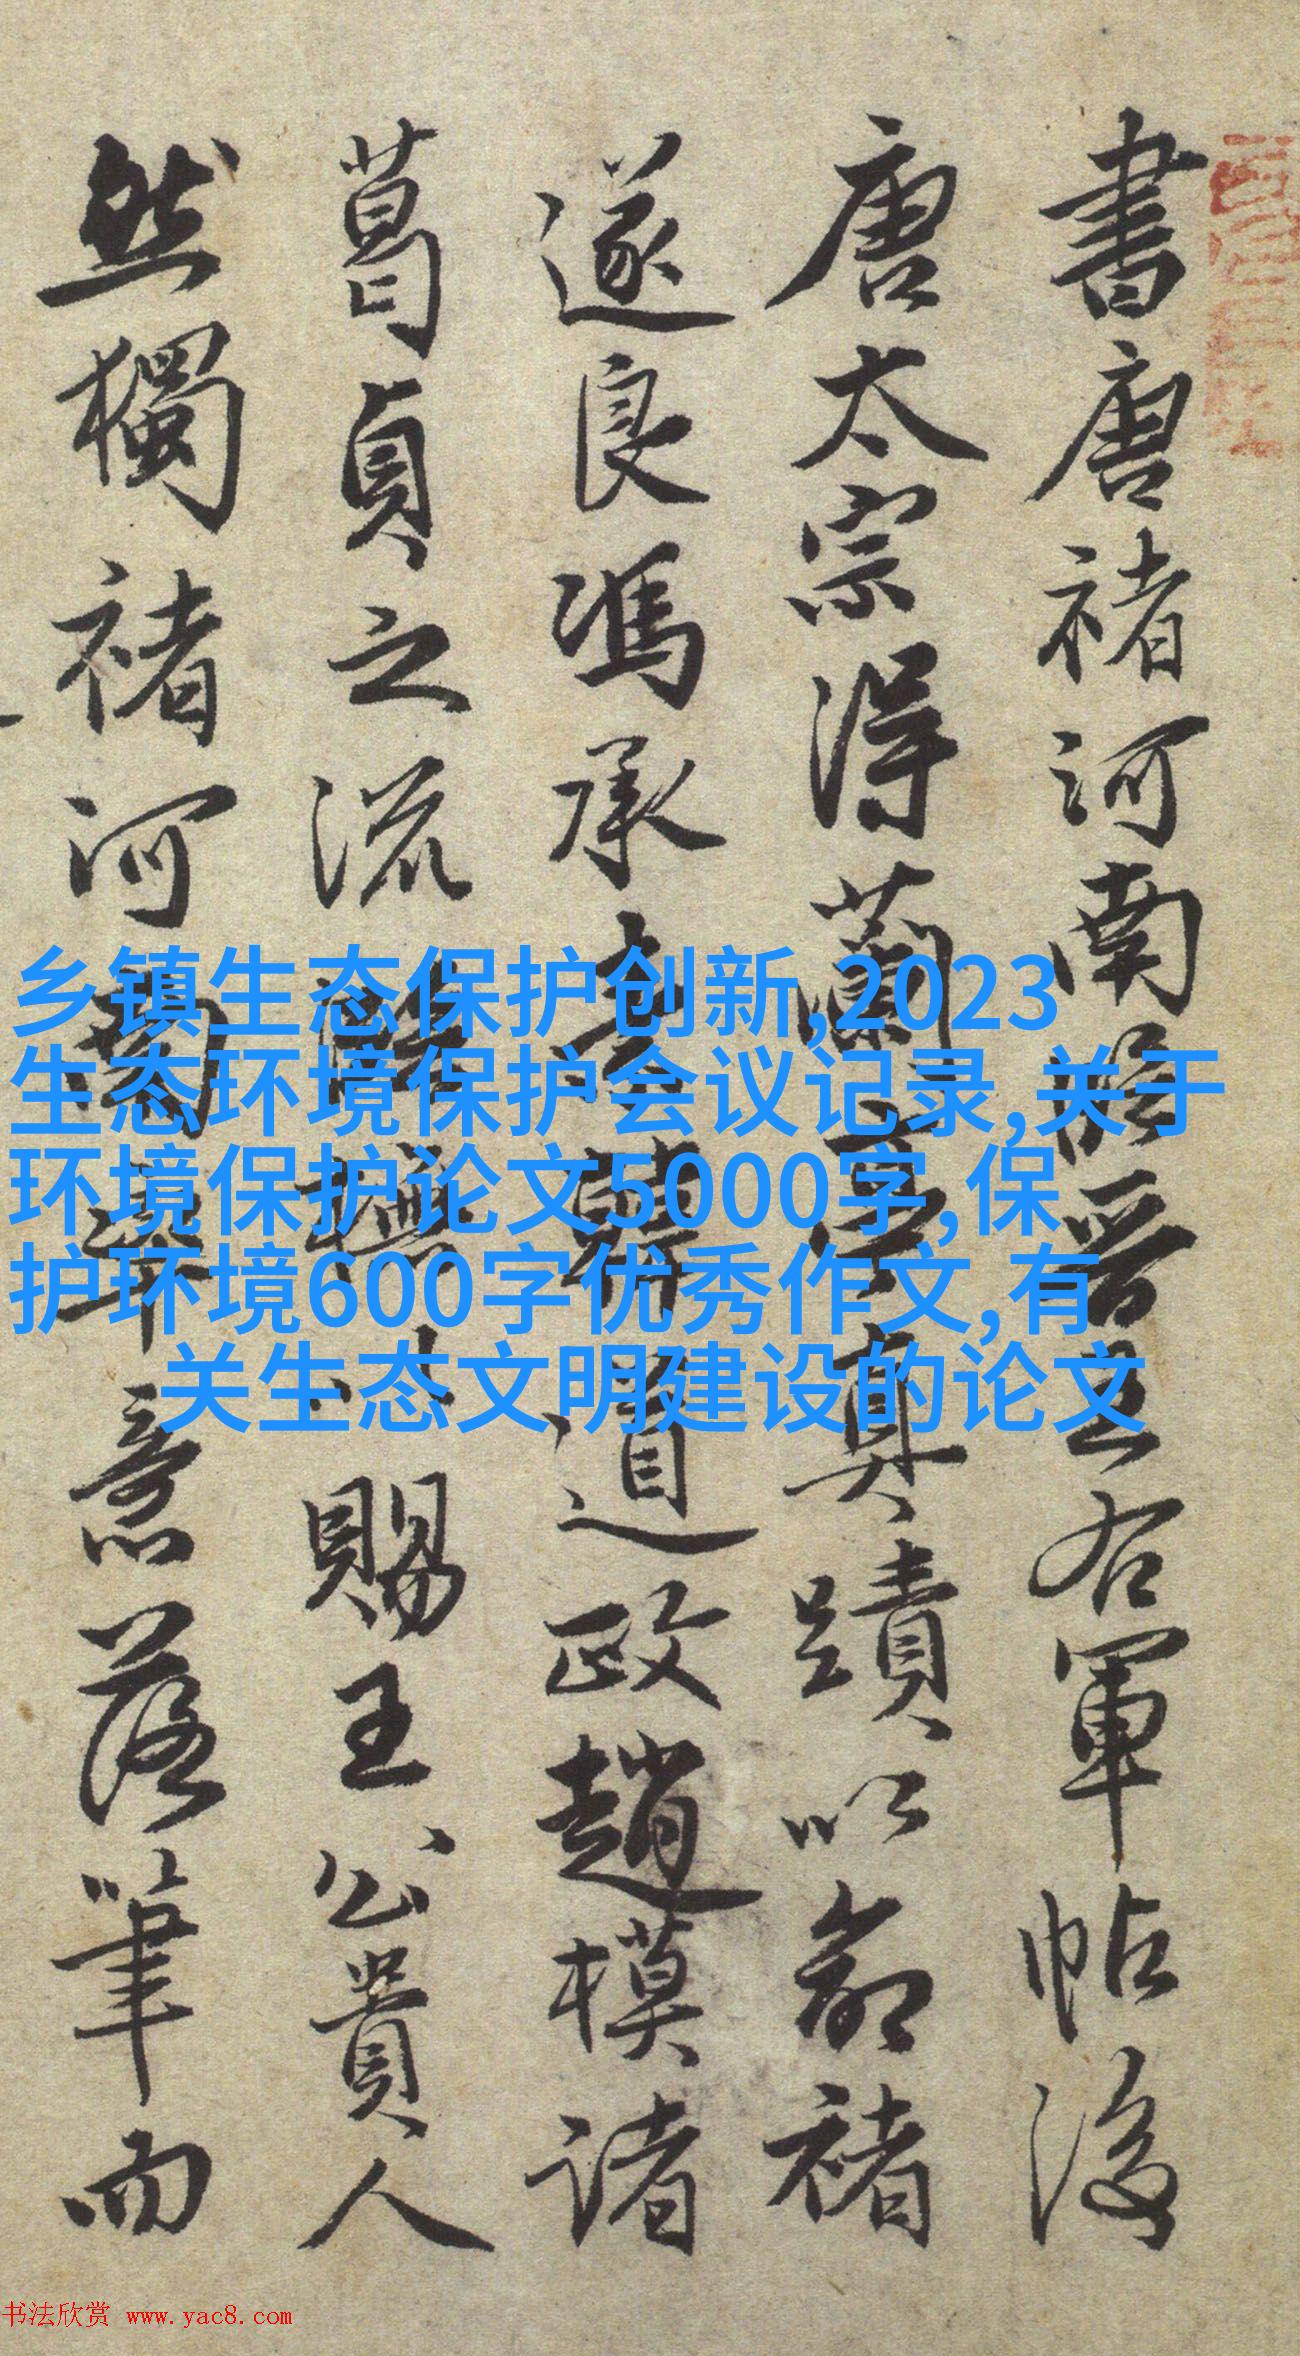 書唐褚河南臨晉王右軍帖後
唐太宗得蘭亭真蹟以命褚
遂良馮承素韓道政趙模諸
葛貞之流
賜王公貴人
然獨褚河南
意落筆而
乡镇生态保护创新,2023
生态环境保护会议记录,关于
环境保护论文5000字,保
护环境600字优秀作文,有
关生态文明建设的论文
书法欣赏 www.yac8.com